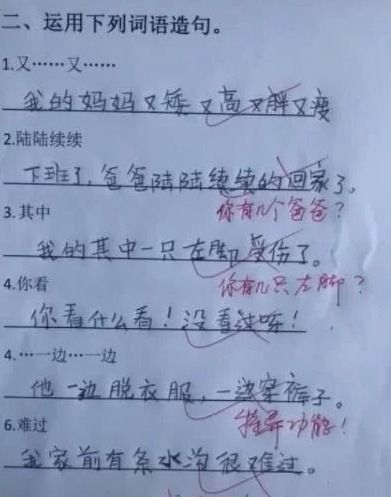 二、运用下列词语造句。
1.又……又……
我的妈妈又矮又高又胖又瘦
2.陆陆续续
下班了,爸爸陆陆续续的回家了。
你有几个爸爸?
3.其中
我的其中一只左脚受伤了。
你有几只左脚?
4.你看
你看什么看!没看过呀!
4.…一边…一边
他一边脱衣服,一边穿裤子。
6.难过
我家前有条水沟很难过。